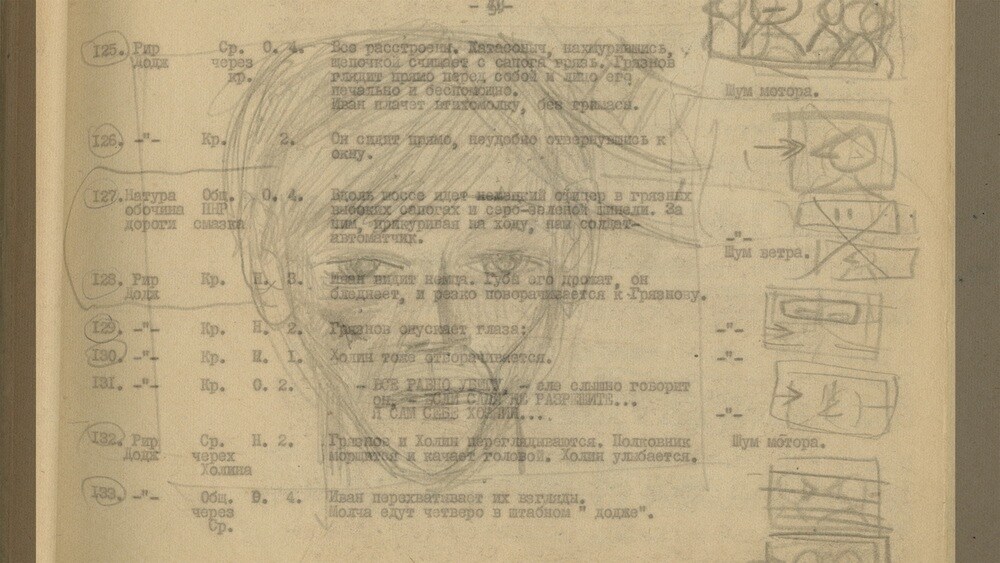 125. Рир Ср. О. 4. Все расстроены. Катасоныч, нахмурившись,
Додж через щепочкой счищает с сапога грязь. Грязнов Шум мотора.
кр. глядит прямо перед собой и лицо его
печально и беспомощно.
Иван плачет втихомолку, без гримаса.
126. -"- Кр. 2. Он сидит прямо, неудобно отвернувшись к
окну.
127. Натура Общ. О. 4. Вдоль шоссе идет немецкий офицер в грязных
обочина ННР высоких сапогах и серо-зеленой шинели. За
дороги смазка ним, прикуривая на ходу, наш солдат-
автоматчик. -"-
Шум ветра.
128. Рир Кр. Н. 3. Иван видит немца. Губы его дрожат, он
Додж бледнеет, и резко поворачивается к Грязнову.
129. -"- Кр. Н. 2. Грязнов опускает глаза: -"-
130. -"- Кр. Н. 1. Холин тоже отворачивается. -"-
131. -"- Кр. О. 2. - ВСЕ РАВНО УБЕГУ, - еле слышно говорит
он, - РАЗРЕШИТЕ...
Я САМ СЕБЕ ХОЗЯИН.... -"-
132. Рир Ср. Н. 2. Грязнов и Холин переглядываются. Полковник Шум мотора.
Додж черех морщится и качает головой. Холин улыбается.
Холина
133. -"- Общ. В. 4. Иван перехватывает их взгляды.
через Молча едут четверо в штабном " додже".
Ср.